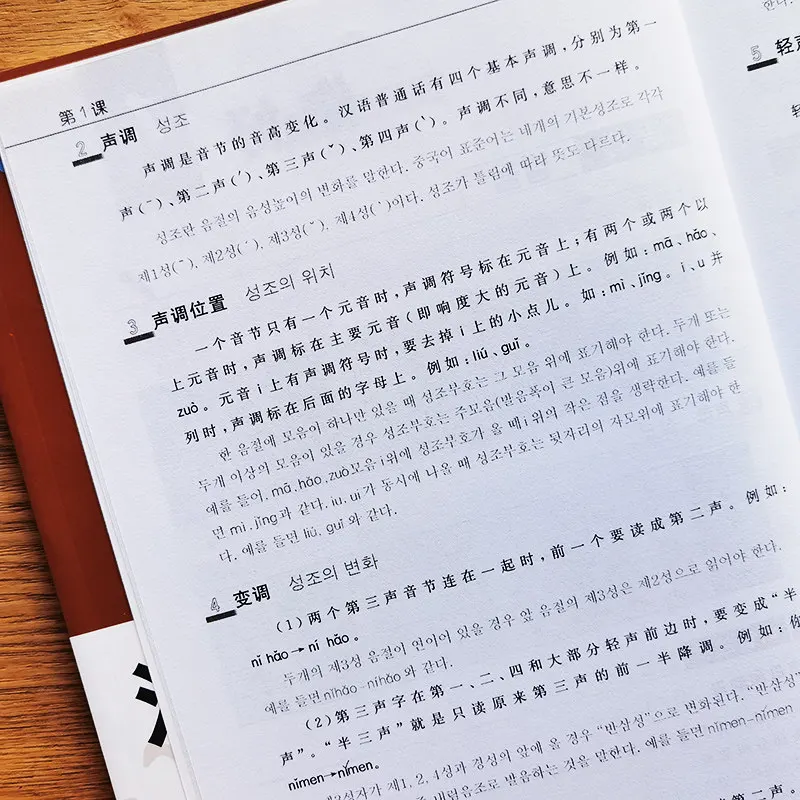 第1课
2 声调 성조
声调是音节的音高变化。汉语普通话有四个基本声调，分别为第一
声(ˉ)、第二声(ˊ)、第三声(ˇ)、第四声(ˋ)。声调不同，意思不一样。
성조란 음절의 음성높이의 변화를 말한다. 중국어 표준어는 네개의 기본성조로 각각
제1성(ˉ), 제2성(ˊ), 제3성(ˇ), 제4성(ˋ)이다. 성조가 틀림에 따라 뜻도 다르다.
3 声调位置 성조의 위치
一个音节只有一个元音时，声调符号标在元音上；有两个或两个以
上元音时，声调标在主要元音(即响度大的元音)上。例如：mā、hǎo、
zuò。元音i上有声调符号时，要去掉i上的小点儿。如：mì、jīng。i、u并
列时，声调标在后面的字母上。例如：liú、guī。
한 음절에 모음이 하나만 있을 때 성조부호는 그 모음 위에 표기해야 한다. 두개 또는
두개 이상의 모음이 있을 경우 성조부호는 주모음(발음폭이 큰 모음)위에 표기해야 한다.
예를 들어, mā、hǎo、zuò모음 i위에 성조부호가 올 때 i 위의 작은 점을 생략한다. 예를 들
면 mì、jīng과 같다. iu, ui가 동시에 나올 때 성조부호는 뒷자리의 자모위에 표기해야 한
다. 예를 들면 liú, guī 와 같다.
4 变调 성조의 변화
(1)两个第三声音节连在一起时，前一个要读成第二声。例如：
nǐ hǎo→ní hǎo。
두개의 제3성 음절이 연이어 있을 경우 앞 음절의 제3성은 제2성으로 읽어야 한다.
예를 들면nǐhǎo-níhǎo와 같다.
(2)第三声字在第一、二、四和大部分轻声前边时，要变成“半
声”。“半三声”就是只读原来第三声的前一半降调。例如：你
nǐmen→nǐmen。
제3성자가 제1, 2, 4성과 경성의 앞에 올 경우 “반삼성”으로 변화된다. “반삼성”
내림음조로 발음하는 것을 말한다. 예를 들면nǐmen-nǐmen
5 轻声